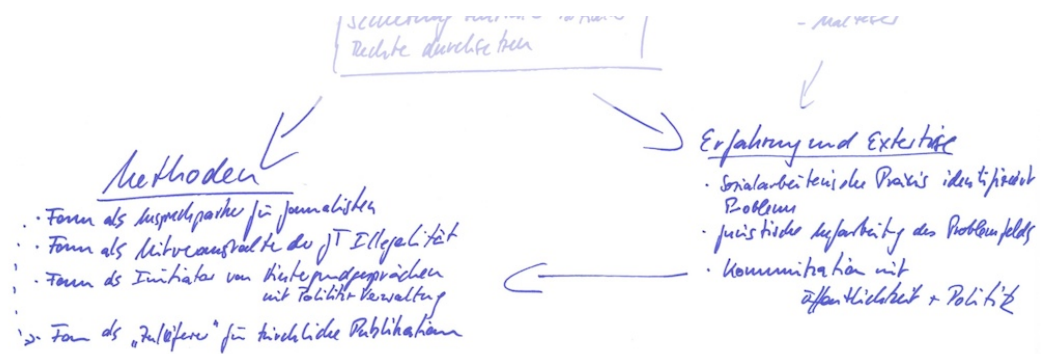 Rechte durchsetzen
- Malteser
Methoden
· Forum als Ansprechpartner für Journalisten
· Forum als Mitveranstalter der JT Illegalität
· Forum als Initiator von Hintergrundgesprächen
mit Politik + Verwaltung
· Forum als „Zulieferer“ für kirchliche Publikationen
Erfahrung und Extertise
· Sozialarbeiterische Praxis identifiziert
Problem
· juristische Aufarbeitung des Problemfelds
· Kommunikation mit
Öffentlichkeit + Politik